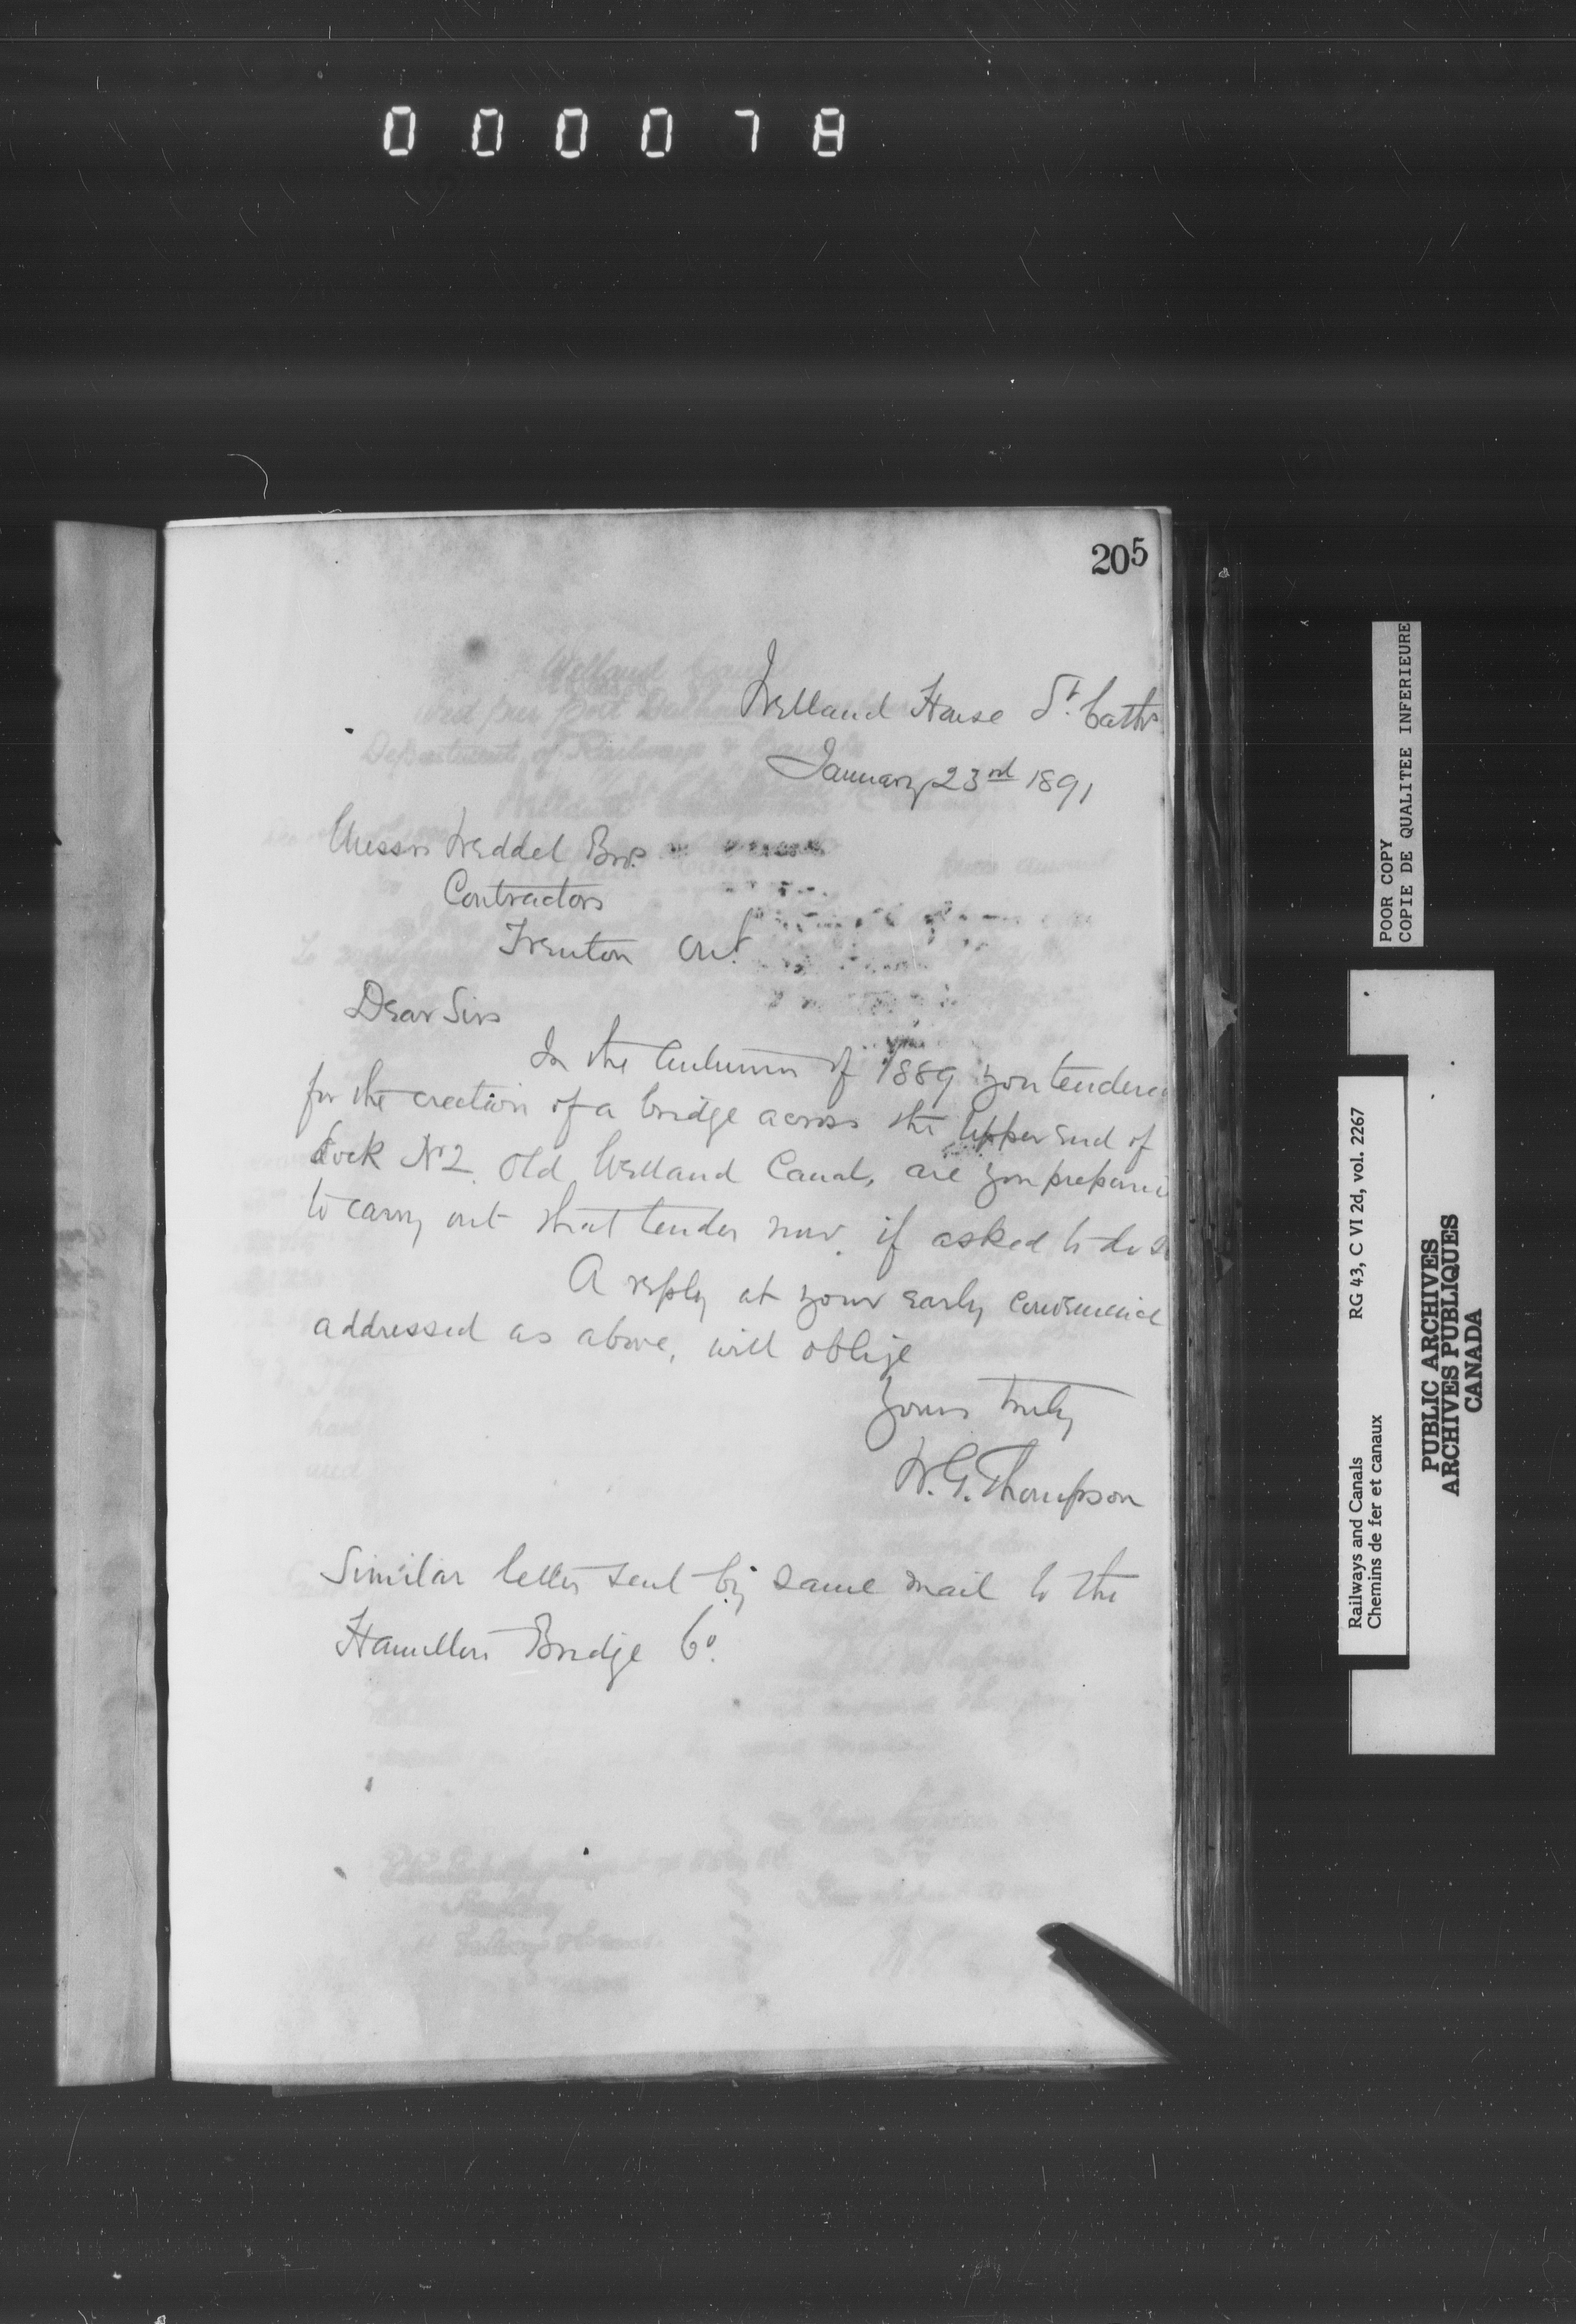 000078
205
Welland House St. Caths
January 23rd 1891
Messrs Weddel Bros.
Contractors
Trenton Ont.
Dear Sirs
In the Autumn of 1889 you tendered
for the erection of a bridge across the upper end of
Lock No 2. Old Welland Canal, are you prepared
to carry out that tender now, if asked to do so
A reply at your early convenience
addressed as above, will oblige
Yours truly
W. G. Thompson
Similar letter sent by same mail to the
Hamilton Bridge Co.
POOR COPY
COPIE DE QUALITEE INFERIEURE
RG 43, C VI 2d, vol. 2267
Railways and Canals
Chemins de fer et canaux
PUBLIC ARCHIVES
ARCHIVES PUBLIQUES
CANADA